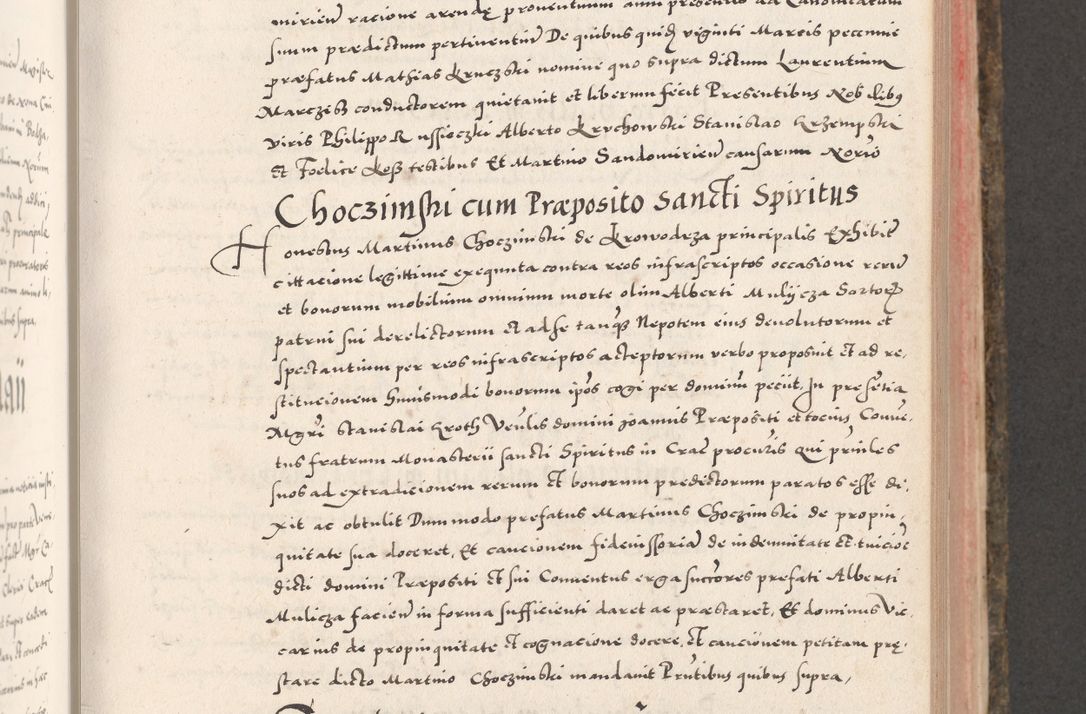 mirien̄ racione arendę proventuum anni presentis ad Canonicatum
suum prædictum pertinentiū De quibus quidȝ viginti Marcis pecunie
præfatus Mathias Kruczski nomine quo supra dictum Laurentium
Marczesz conductorem quietavit et liberum fecit Presentibus Nobilibꝯ
viris Philippo Russioczki Alberto Krychowski Stanislao Krzempski
Et Foelice Kosz testibus Et Martino Sandomirien̄ causarum Nor̄io
Choczimski cum Præposito Sancti Spiritus
Honestus Martinus Choczimski de Krowodrza principalis Exhibit̄
cittacione legittime exequuta contra reos infrascriptos occasione rerū
et bonorum mobilium omnium morte olim Alberti Mulijcza Sartoꝝ
patrui sui derelictorum Et ad se tanqȝ Nepotem eius devolutorum et
spectantium per reos infrascriptos acceptorum verbo proposuit Et ad re,
stitucionem huiusmodi bonorum ip̄os cogi per dominū peciit, In presētia
Mgr̄i Stanislai Kroth Ven̄lis domini Joannis Præpositi et tocius Conve,
tus fratrum Monasterii sancti Spiritus in Crac̄ procur̄is Qui pr̄ines
suos ad extradicionem rerum Et bonorum predictorum paratos esse di,
xit ac obtulit Dummodo prefatus Martinus Choczimski de propin,
quitate sua doceret, Et caucionem fideiussoriā de indemnitate Et tuicioē
dicti domini Præpositi Et sui Conventus erga succ̄ores prefati Alberti
Mulicza facien̄ in forma sufficienti daret ac præstaret, Et dominus Vic,
carius de propinquitate Et cognacione docere, Et caucionem petitam prę,
stare dicto Martino Choczimski mandavit Pr̄ntibus quibus supra,